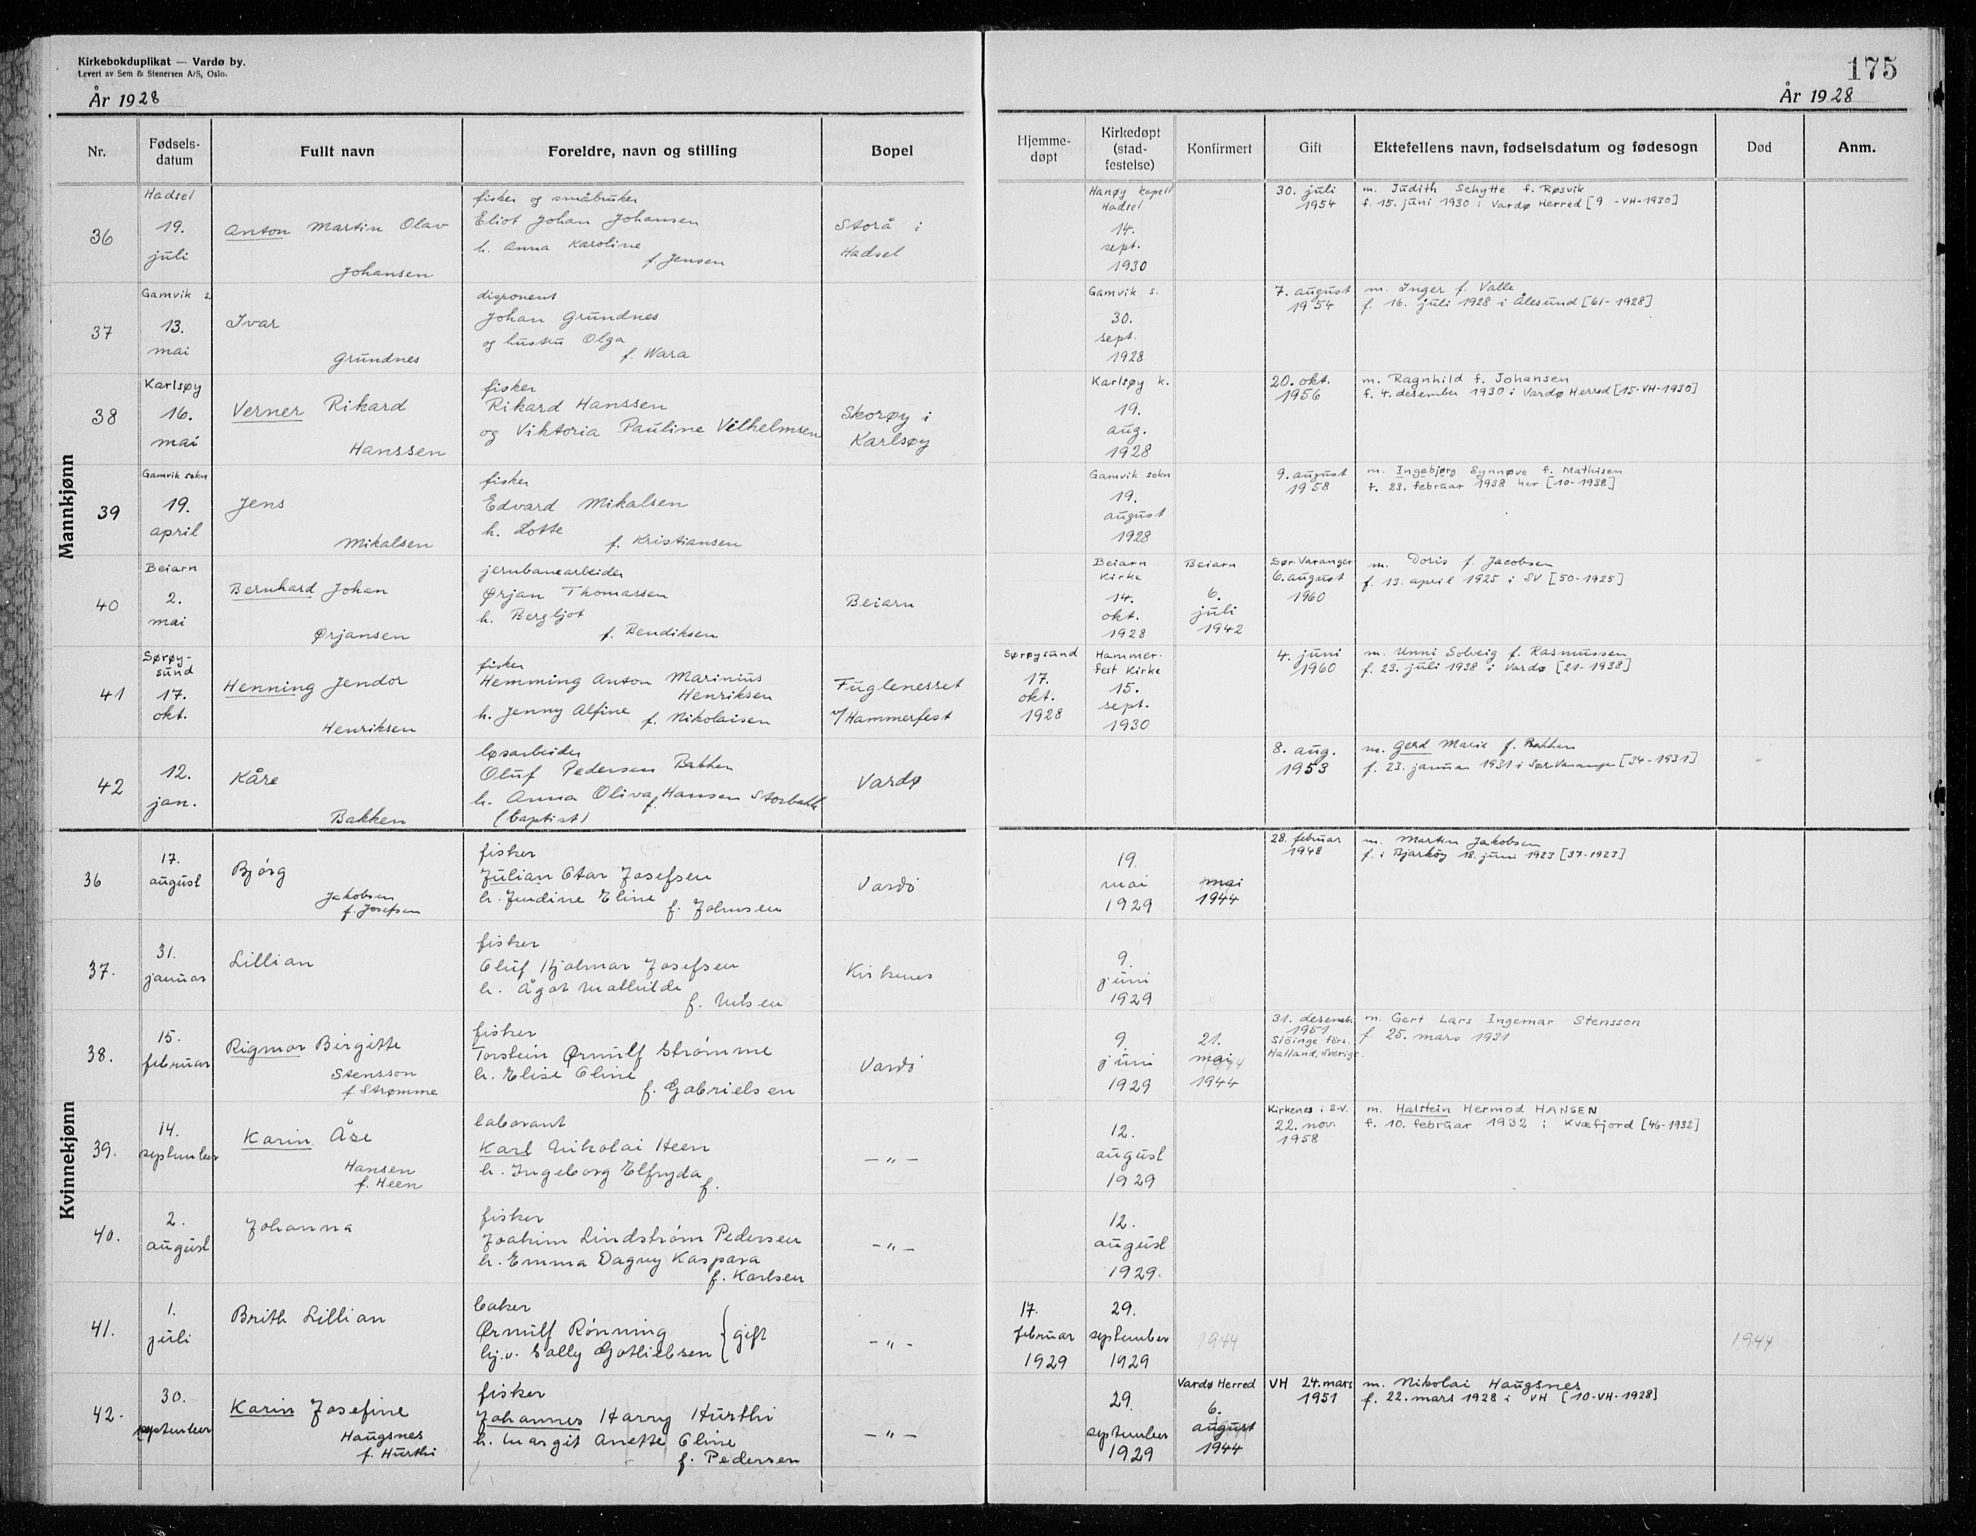 Kirkebokduplikat — Vardø by.
Levert av Sem & Stenersen A/S, Oslo.
År 1928
175
År 1928
Nr.
Fødsels-
datum
Fullt navn
Foreldre, navn og stilling
Bopel
Hjemme-
døpt
Kirkedøpt
(stad-
festelse)
Konfirmert
Gift
Ektefellens navn, fødselsdatum og fødesogn
Død
Anm.
Mannkjønn
36
Hadsel
19.
juli
Anton Martin Olav
Johansen
fisker og småbruker
Eliot Johan Johansen
h. Anna Karoline
f. Jensen
Storå i
Hadsel
Hanøy kapell
Hadsel
14.
sept.
1930
30. juli
1954
m. Judith Schytte f. Røsvik
f. 15. juni 1930 i Vardø Herred [9 -VH-1930]
37
Gamvik s.
13.
mai
Ivar
Grundnes
disponent
Johan Grundnes
og hustru Olga
f. Wara
Gamvik s.
30.
sept.
1928
7. august
1954
m. Inger f. Valle
f. 16. juli 1928 i Ålesund [61-1928]
38
Karlsøy
16.
mai
Verner Rikard
Hanssen
fisker
Rikard Hanssen
og Viktoria Pauline Vilhelmsen
Skorøy i
Karlsøy
Karlsøy k.
19.
aug.
1928
20. okt.
1956
m. Ragnhild f. Johansen
f. 4. desember 1930 i Vardø Herred [15-VH-1930]
39
Gamvik sokn
19.
april
Jens
Mikalsen
fisker
Edvard Mikalsen
h. Lotte
f. Kristiansen
Gamvik sokn
19.
august
1928
9. august
1958
m. Ingebjørg Synnøve f. Mathisen
f. 23. februar 1938 her [10-1938]
40
Beiarn
2.
mai
Bernhard Johan
Ørjansen
jernbanearbeider
Ørjan Thomassen
h. Bergljot
f. Bendiksen
Beiarn
Beiarn
Kirke
14.
okt.
1928
Beiarn
6.
juli
1942
Sør-Varanger
6. august
1960
m. Doris f. Jacobsen
f. 13. april 1925 i SV [50-1925]
41
Sørøy-
sund
17.
okt.
Henning Jendor
Henriksen
fisker
Hemming Anton Marinius
Henriksen
h. Jenny Alfine f. Nikolaisen
Fuglenesset
v/Hammerfest
Sørøysund
17.
okt.
1928
Hammer-
fest Kirke
15.
sept.
1930
4. juni
1960
m. Unni Solveig f. Rasmussen
f. 23. juli 1938 i Vardø [21-1938]
42
12.
jan.
Kåre
Bakken
løsarbeider
Oluf Pedersen Bakken
h. Anna Oliva f. Hansen Storbakk
(baptist)
Vardø
8. aug.
1953
m. Gerd Marie f. Bakken
f. 23. januar 1931 i Sør Varanger [34-1931]
Kvinnekjønn
36
17.
august
Bjørg
Jakobsen
f. Josefsen
fisker
Julian Otar Josefsen
h. Jendine Eline
f. Johnsen
Vardø
19.
mai
1929
mai
1944
28. februar
1948
m. Martin Jakobsen
f. i Bjarkøy 18. juni 1923 [37-1923]
37.
31.
januar
Lillian
fisker
Oluf Hjalmar Josefsen
h. Ågot Mathilde
f. Nilsen
Kirkenes
9.
juni
1929
38.
15.
februar
Rigmor Birgitte
Stensson
f. Strømme
fisker
Torstein Ørnulf Strømme
h. Elise Oline
f. Gabrielsen
Vardø
9.
juni
1929
21.
mai
1944
31. desemb.
1951
Slöinge förs.
Halland, Sverige
m. Gert Lars Ingemar Stensson
f. 25. mars 1931
39.
14.
september
Karin Åse
Hansen
f. Heen
laborant
Karl Nikolai Heen
h. Ingeborg Elfryda
f.
— " —
12.
august
1929
Kirkenes i S-V.
22. nov.
1958
m. Halstein Hermod HANSEN
f. 10. februar 1932 i Kvæfjord [46-1932]
40.
2.
august
Johanna
fisker
Joakim Lindstrøm Pedersen
h. Emma Dagny Kaspara
f. Karlsen
— " —
12.
august
1929.
41.
1.
juli
Brith Lillian
baker
Ørnulf Rønning
hj.v. Sally Gotliebsen } gift
— " —
17.
februar
1929
29.
september
1929
1944
1944
42.
30.
september
Karin Josefine
Haugsnes
f. Hurthi
fisker
Johannes Harry Hurthi
h. Margit Anette Oline
f. Pedersen
— " —
29.
september
1929
Vardø Herred
6.
august
1944
VH 24. mars
1951
m. Nikolai Haugsnes
f. 22. mars 1928 i VH [10-VH-1928]